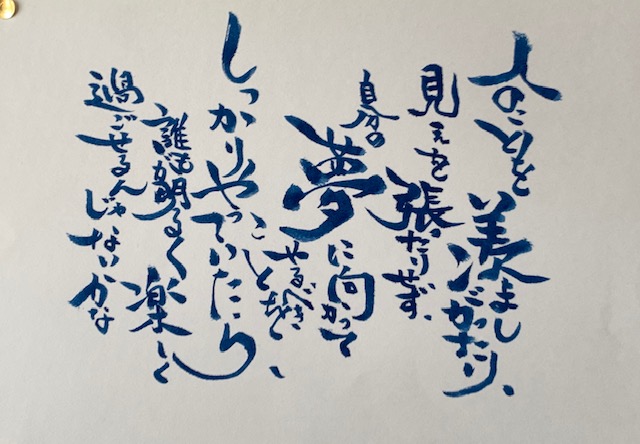 人のことを
羨ましがったり、
見えを
張ったりせず、
自分の
夢に向かって
やるべき
ことを、
しっかりやっていたら
誰もが明るく楽しく
過ごせるんじゃないかな